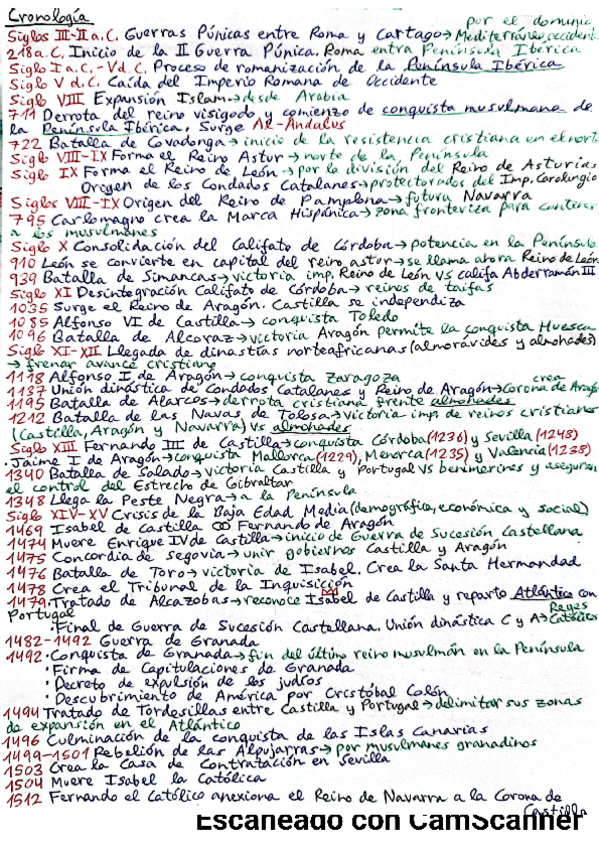 Cronología
Siglos III-II a.C. Guerras Púnicas entre Roma y Cartago→ por el dominio Mediterráneo occident.
218 a.C. Inicio de la II Guerra Púnica. Roma entra Península Ibérica
Siglo I a.C.-V d.C. Proceso de romanización de la Península Ibérica
Siglo V d.C. Caída del Imperio Romano de Occidente
Siglo VIII Expansión Islam→desde Arabia
711 Derrota del reino visigodo y comienzo de conquista musulmana de
la Península Ibérica. Surge AL-Ándalus
722 Batalla de Covadonga→inicio de la resistencia cristiana en el nort
Siglo VIII-IX Forma el Reino Astur→norte de la Península
Siglo IX Forma el Reino de León→por la división del Reino de Asturias
Origen de los Condados Catalanes→protectorados del Imp. Carolingio
Siglos VIII-IX Origen del Reino de Pamplona→futura Navarra
795 Carlomagno crea la Marca Hispánica→zona fronteriza para contener
a los musulmanes
Siglo X Consolidación del Califato de Córdoba→potencia en la Península
910 León se convierte en capital del reino astur→se llama ahora Reino de León
939 Batalla de Simancas→victoria imp. Reino de León VS califa Abderramán III
Siglo XI Desintegración Califato de Córdoba→reinos de taifas
1035 Surge el Reino de Aragón. Castilla se independiza
1085 Alfonso VI de Castilla→conquista Toledo
1096 Batalla de Alcoraz→victoria Aragón permite la conquista Huesca
Siglo XI-XII Llegada de dinastías norteafricanas (almorávides y almohades)
→frenar avance cristiano
1118 Alfonso I de Aragón→conquista Zaragoza
1137 Unión dinástica de Condados Catalanes y Reino de Aragón→crea Corona de Arag
1195 Batalla de Alarcos→derrota cristiana frente almohades
1212 Batalla de Las Navas de Tolosa→victoria imp de reinos cristianos
(Castilla, Aragón y Navarra) vs almohades
Siglo XIII Fernando III de Castilla→conquista Córdoba (1236) y Sevilla (1248)
·Jaime I de Aragón→conquista Mallorca (1229), Menorca (1235) y Valencia (1238)
1340 Batalla de Salado→victoria Castilla y Portugal VS benimerines y aseguran
el control del Estrecho de Gibraltar
1348 Llega la Peste Negra→a la Península
Siglo XIV-XV Crisis de la Baja Edad Media (demográfica, económica y social)
1469 Isabel de Castilla ꝏ Fernando de Aragón
1474 Muere Enrique IV de Castilla→inicio de Guerra de Sucesión Castellana
1475 Concordia de Segovia→unir gobiernos Castilla y Aragón
1476 Batalla de Toro→victoria de Isabel. Crea la Santa Hermandad
1478 Crea el Tribunal de la Inquisición
1479·Tratado de Alcazobas→reconoce Isabel de Castilla y reparto Atlántico con
Portugal
·Final de Guerra de Sucesión Castellana. Unión dinástica C y A→Reyes Católicos
1482-1492 Guerra de Granada
1492·Conquista de Granada→fin del último reino musulmán en la Península
·Firma de Capitulaciones de Granada
·Decreto de expulsión de los judíos
·Descubrimiento de América por Cristóbal Colón
1494 Tratado de Tordesillas entre Castilla y Portugal→delimitar sus zonas
de expansión en el Atlántico
1496 Culminación de la conquista de las Islas Canarias
1499-1501 Rebelión de las Alpujarras→por musulmanes granadinos
1503 Crea la Casa de Contratación en Sevilla
1504 Muere Isabel la Católica
1512 Fernando el Católico anexiona el Reino de Navarra a la Corona de
Castilla
Escaneado con CamScanner